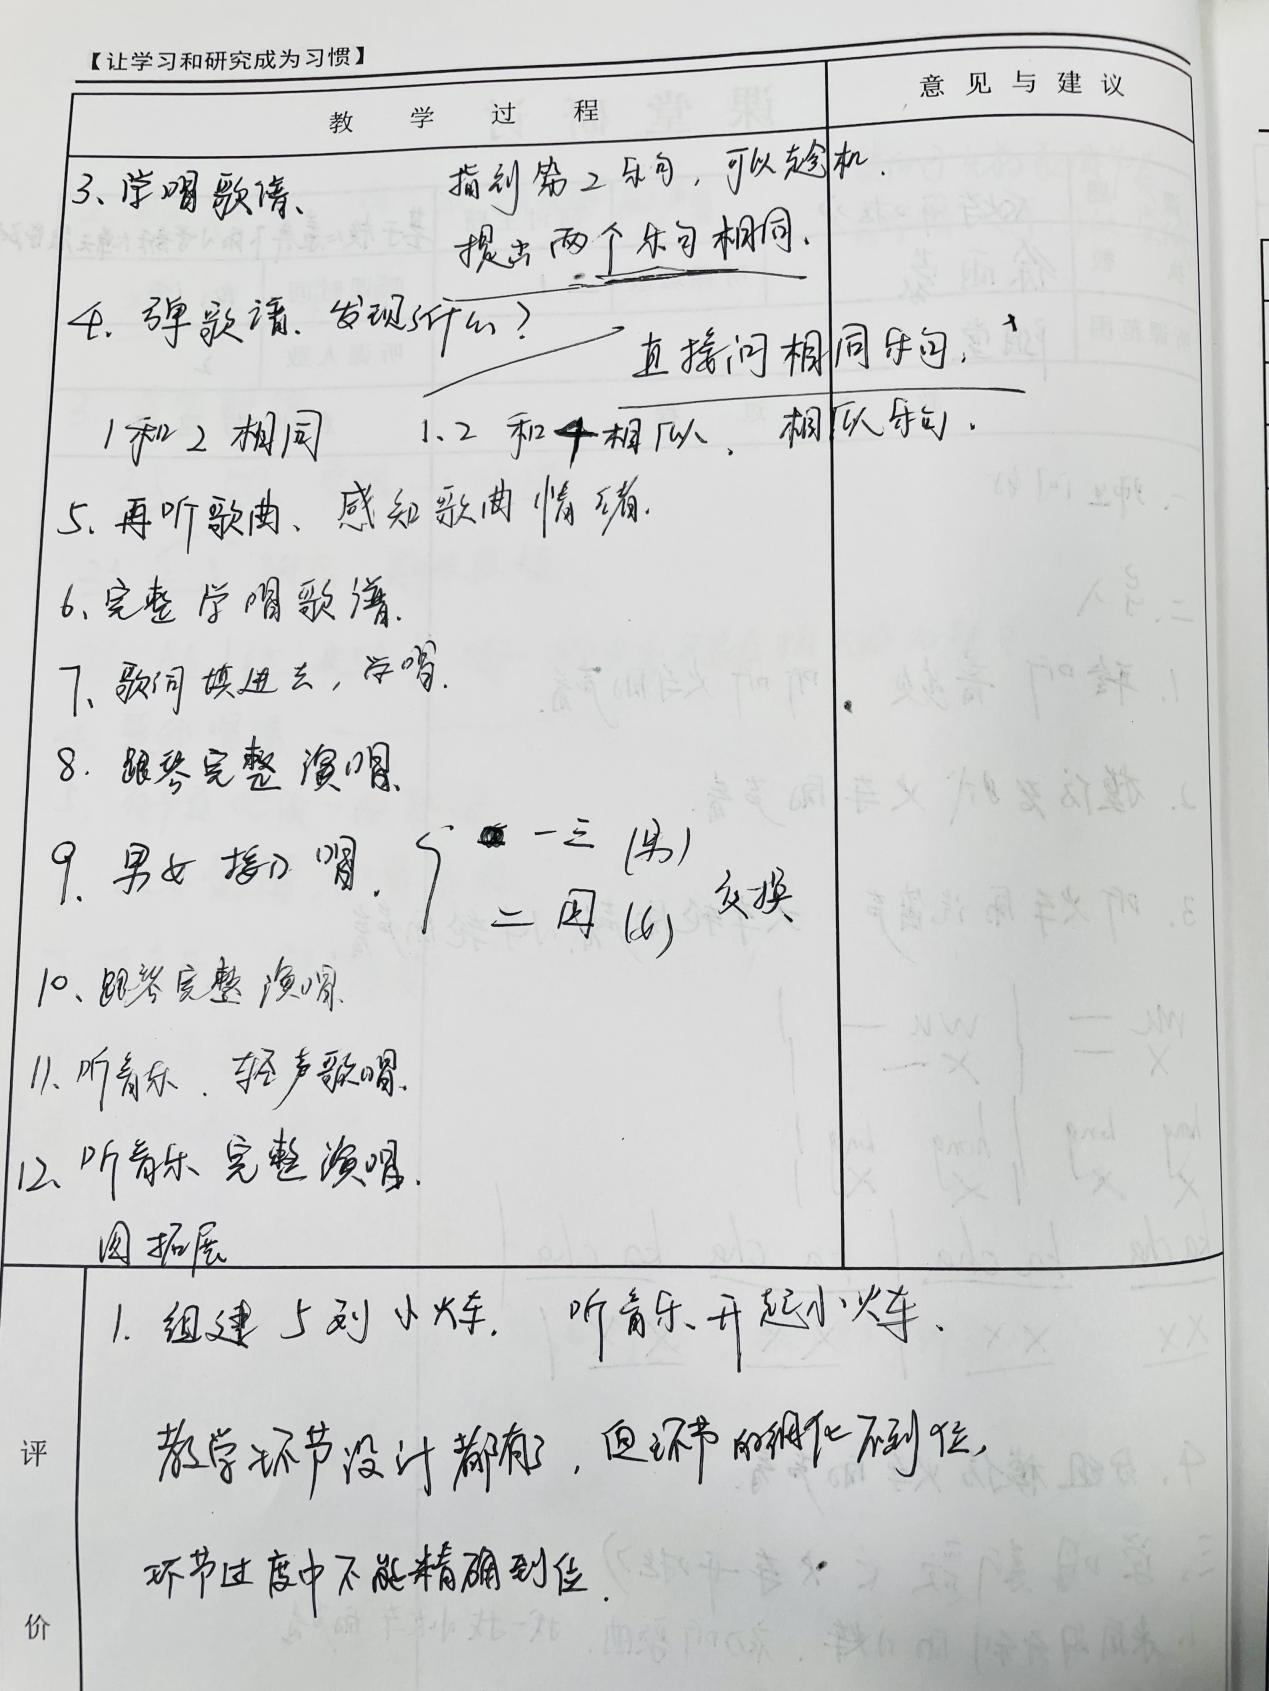 【让学习和研究成为习惯】
教 学 过 程
意 见 与 建 议
3、学唱歌谱、 指到第2乐句,可以趁机.
提出两个乐句相同.
4. 弹歌谱.发现了什么?
直接问相同乐句.
1和2相同 1.2和4相似、相似乐句.
5. 再听歌曲、感知歌曲情绪.
6、完整学唱歌谱.
7、歌词填进去,学唱.
8. 跟琴完整演唱.
9. 男女接口唱. 一三(男)
二四(女) 交换
10、跟琴完整演唱.
11、听音乐.轻声歌唱.
12、听音乐完整演唱.
四拓展
评价
1. 组建5列小火车. 听音乐、开起小火车、
教学环节设计都有了,但环节的细化不到位,
环节过度中不能精确到位.